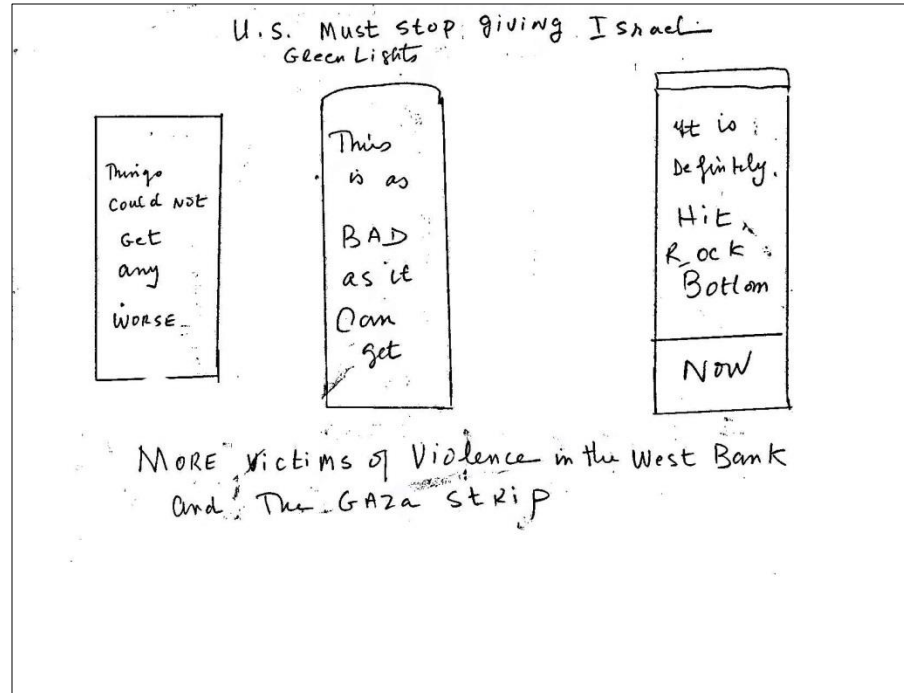 U.S. Must stop giving Israel
Green Lights
Things
could NOT
Get
any
WORSE
This
is as
BAD
as it
Can
get
It is
Definitely.
Hit
Rock
Bottom
NOW
MORE victims of Violence in the West Bank
and The GAZa StRip